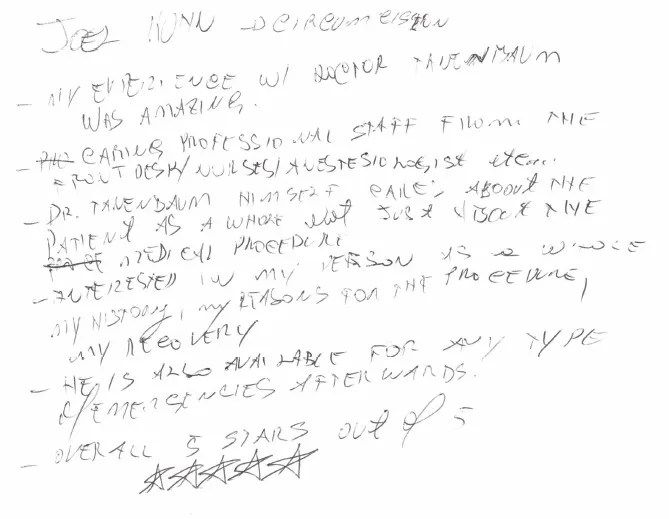 JOEL KUHN CIRCUMCISION
- MY EXPERIENCE W/ DOCTOR TANENBAUM
WAS AMAZING.
- CARING PROFESSIONAL STAFF FROM THE
FRONT DESK/NURSES/ANESTESIOLOGIST etc...
- DR. TANENBAUM HIMSELF CARES ABOOUT THE
PATIENT AS A WHOLE Not JUST ABOUT THE
MEDICAL PROCEDURE
- INTERESTED IN MY PERSON AS a WHOLE
MY HISTORY, MY REASONS FOR THE PROCEDURE,
MY RECOVERY
- HE IS ALSO AVAILABLE FOR ANY TYPE
EMERGENCIES AFTERWARDS.
- OVERALL 5 STARS OUt Of 5